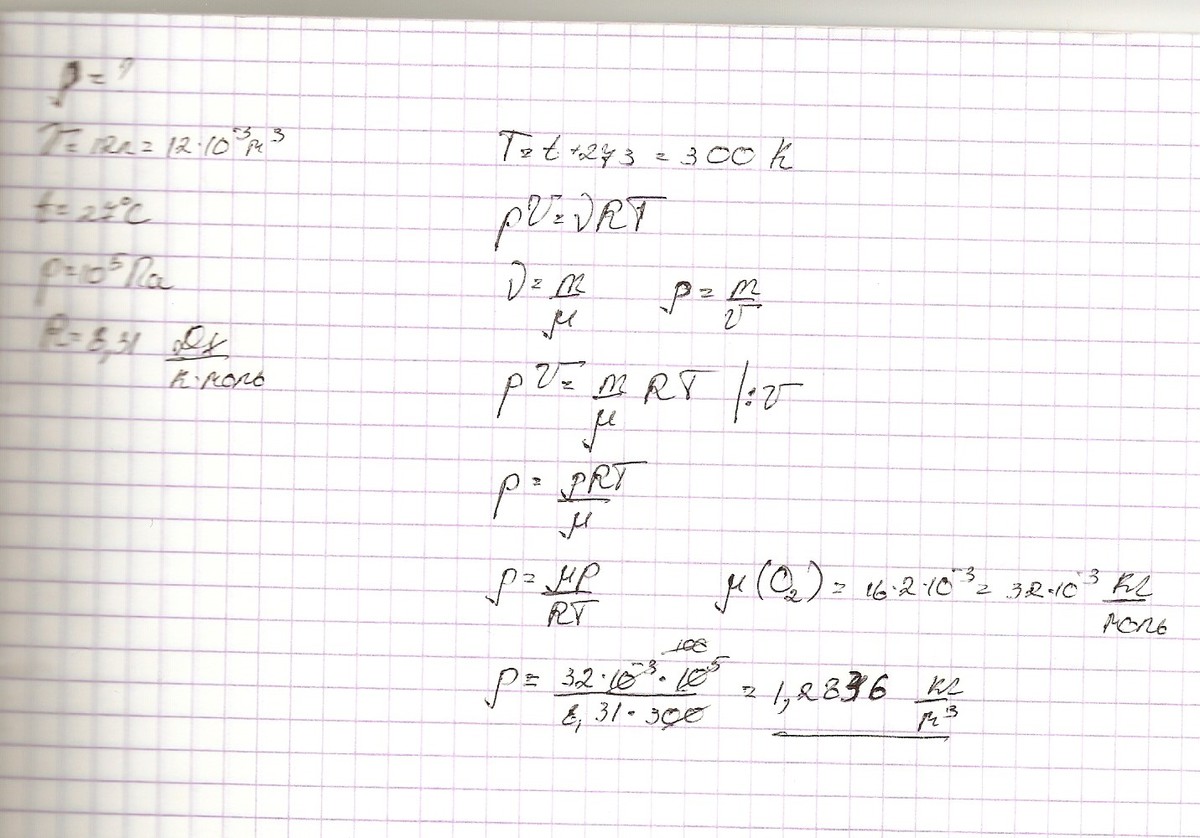 ρ = ?
V = 12л = 12·10⁻³ м³
t = 27°C
p = 10⁵ Па
R = 8,31 Дж/К·моль
T = t + 273 = 300 K
pV = νRT
ν = m/μ ρ = m/V
pV = m/μ RT |:V
p = ρRT/μ
ρ = μp/RT μ(O₂) = 16·2·10⁻³ = 32·10⁻³ кг/моль
100
ρ = 32·10⁻³·10⁵/8,31·300 = 1,2836 кг/м³